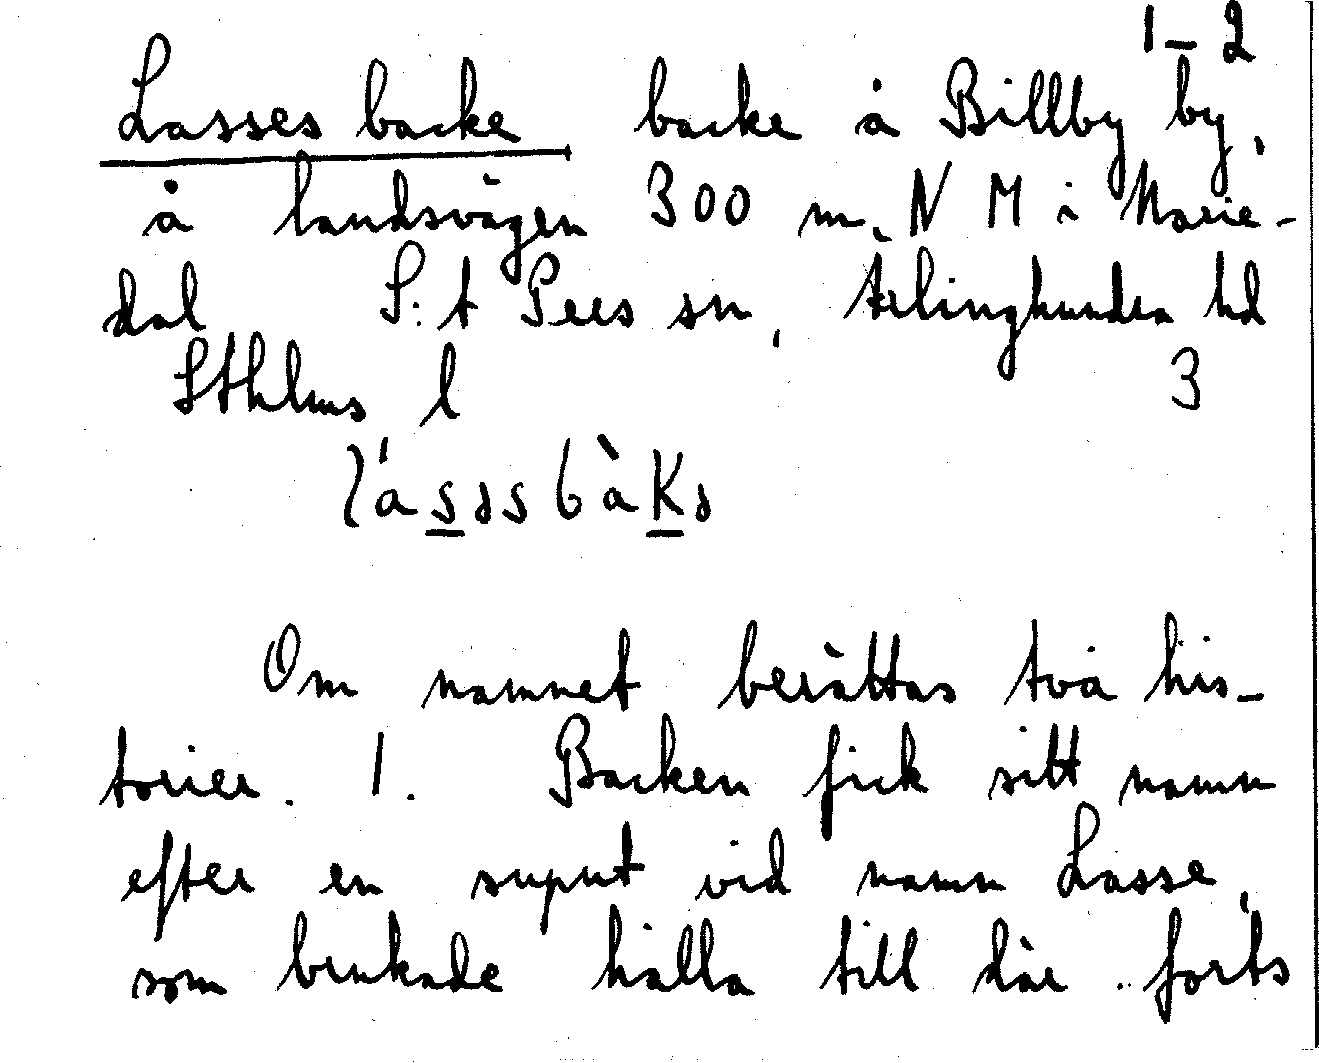 1–2
Lasses backe backe å Billby by,
å landsvägen 300 m. N M i Marie-
dal S:t Pers sn, Ärlinghundra hd
Sthlms l 3
Om namnet berättas två his-
torier. 1. Backen fick sitt namn
efter en suput vid namn Lasse,
som brukade hålla till där. forts